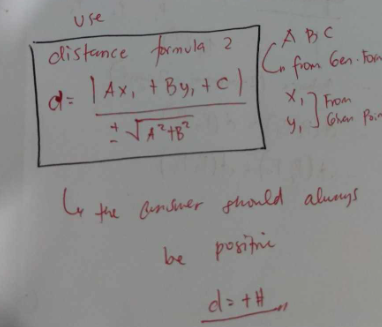 use
distance formula 2
d = |Ax₁ + By₁ + C|
± √A²+B²
A B C
↳ from Gen. Fo
x₁ ] From
y₁ ] Given Poin
↳ the answer should always
be positive
d = + #